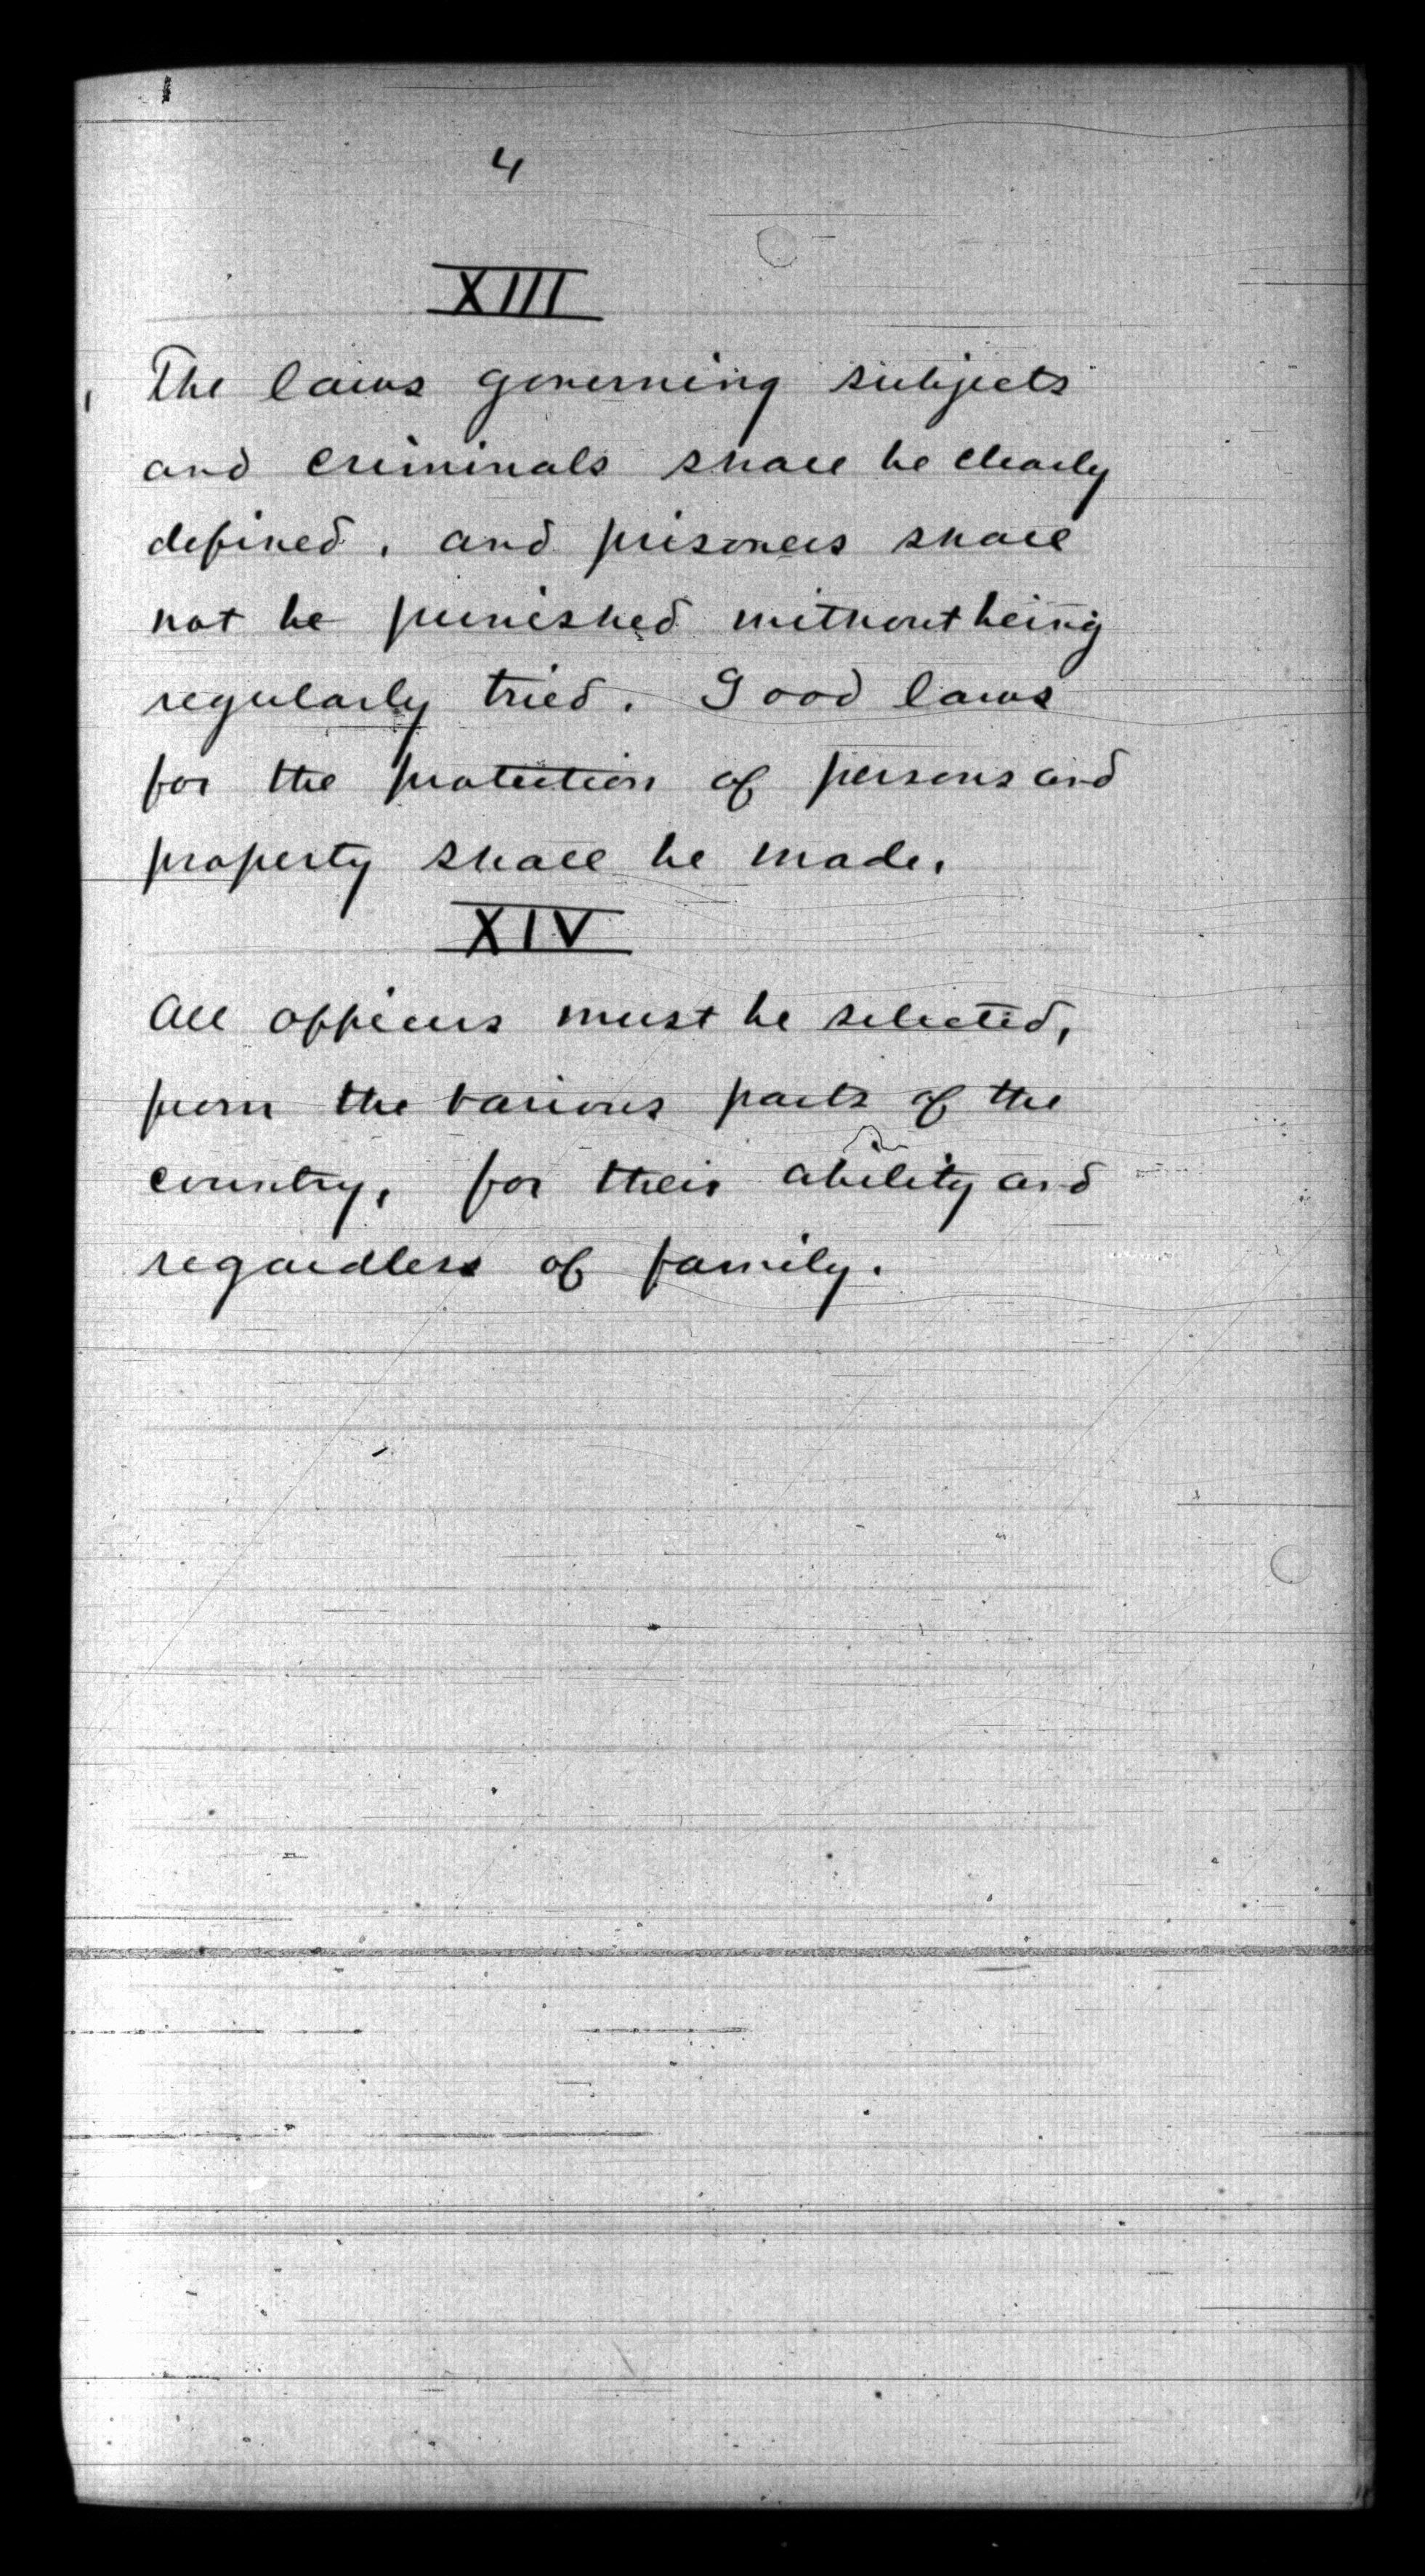 4
XIII
The laws governing subjects
and criminals shall be clearly
defined, and prisoners shall
not be punished without being
regularly tried. Good laws
for the protection of persons and
property shall be made.
XIV
All officers must be selected,
from the various parts of the
country, for their ability and
regardless of family.